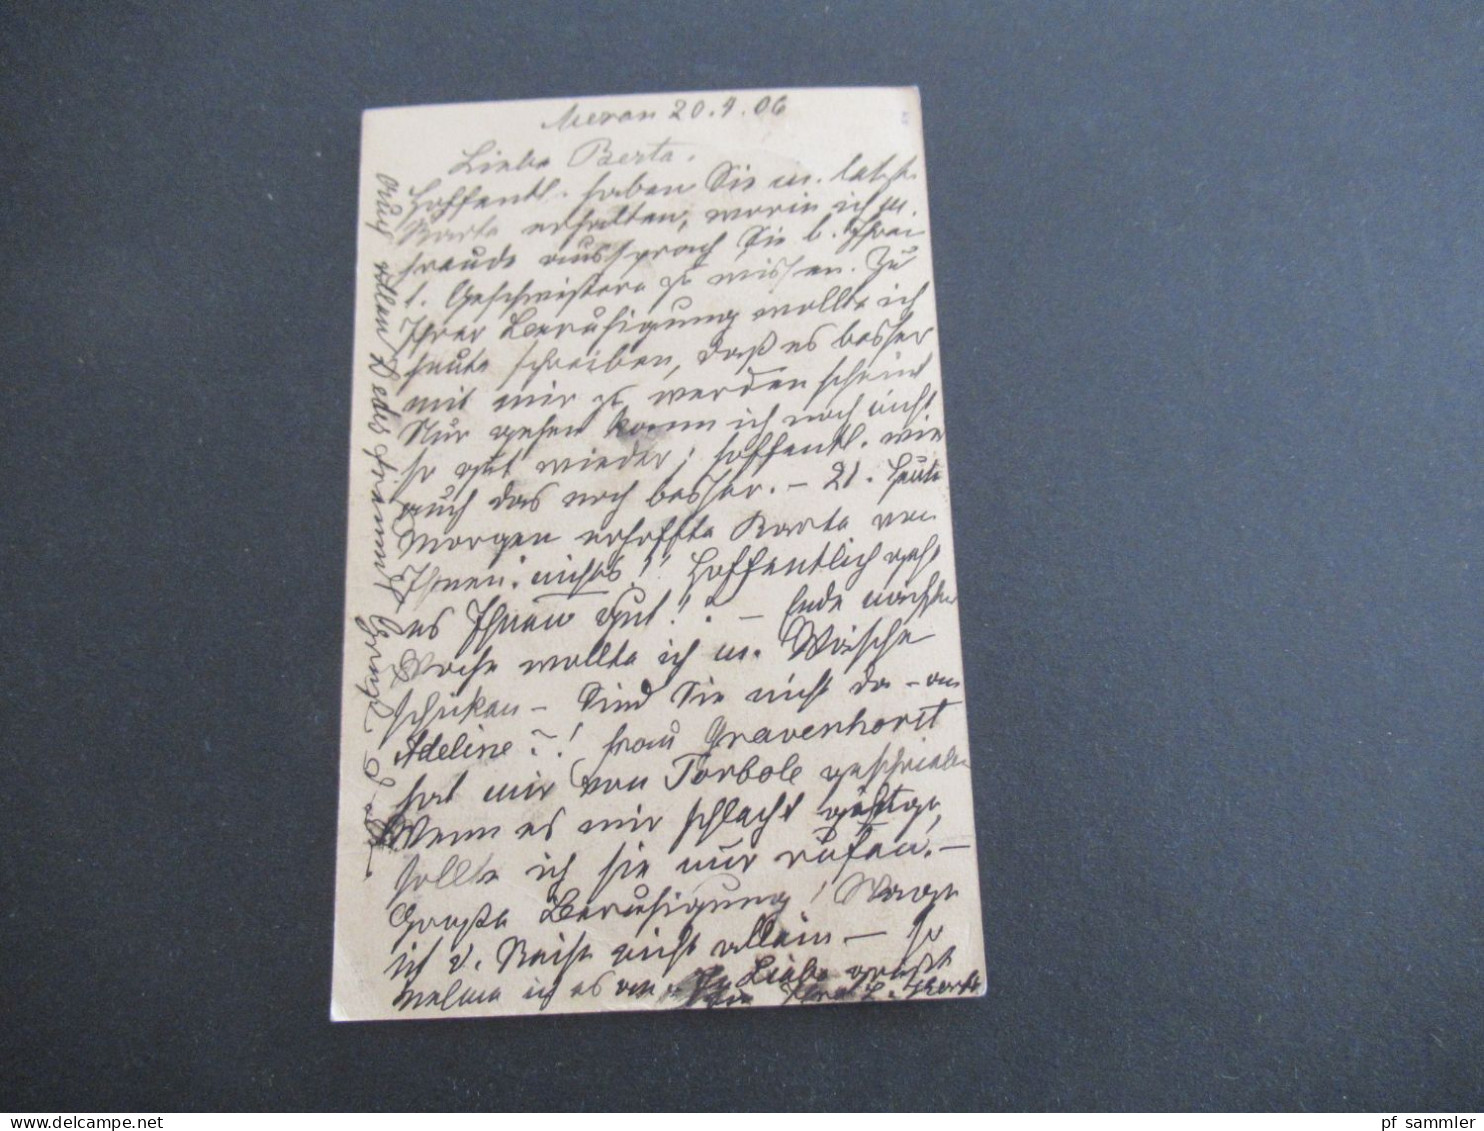 Meran 20.9.06
Liebe Berta.
Hoffentl. haben Sie m. letzte
Karte erhalten, worin ich m.
Freude aussprach Sie b. Ihren
l. Geschwistern zu wissen. Zu
Ihrer Beruhigung wollte ich
heute schreiben, daß es besser
mit mir zu werden scheint
Nur gehen kann ich noch nicht
so gut wieder; hoffentl. wird
auch das noch besser. – 21. Heute
Morgen erhoffte Karte von
Ihnen: nichts!! Hoffentlich geht
es Ihnen gut!? – Ende nächster
Woche wollte ich m. Wäsche
schicken – Sind Sie nicht da – an
Adeline?! Frau Gravenhorst
hat mir von Torbole geschrieben
Wenn es mir schlecht ginge,
sollte ich sie nur rufen. –
Große Beruhigung! Wage
ich d. Reise nicht allein – so
nehme ich es an. In Liebe grüßt
Ihre
auch allen Gruß